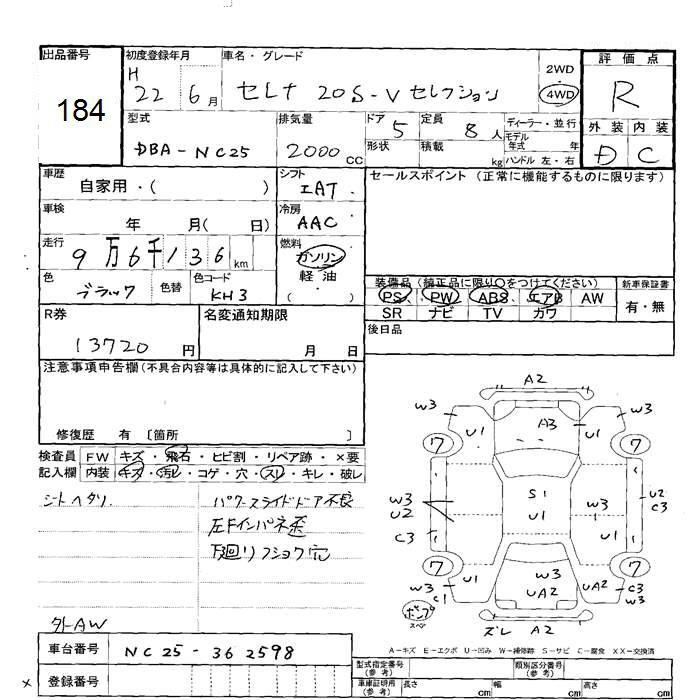 出品番号 初度登録年月 車名・グレード 評価点
184
H 22 6月 セレナ 20S-Vセレクション 2WD・4WD R
型式 排気量 ドア 定員 ディーラー・並行 外装 内装
DBA-NC25 2000CC 5 8人 モデル年式 年 D C
形状 積載 kg ハンドル 左・右
車歴 シフト セールスポイント(正常に機能するものに限ります)
自家用・( ) IAT
車検 冷房
年 月( 日) AAC
走行 燃料
9万6千136km ガソリン
軽油
( )
色 色替 色コード
ブラック KH3
装備品(純正品に限り○をつけてください) 新車保証書
PS PW ABS エアB AW 有・無
SR ナビ TV カワ
R券 名変通知期限 後日品
13720円 月 日
注意事項申告欄(不具合内容等は具体的に記入して下さい)
修復歴 有 〔箇所 〕
検査員 FW キズ・飛石・ヒビ割・リペア跡・×要
記入欄 内装 キズ・汚レ・コゲ・穴・スレ・キレ・破レ
シートヘタリ パワースライドドア不良
左Fインパネ歪
下廻りフショク穴
外AW
A2
W3 U1 A3 U1 W3
7 7
W3 S1 W3 U2
U2 U1 C3
C3
7 7
W3 U1 W3 UA2 C3
C1 UA2 W3
パンプ スペア
ズレ A2
A-キズ E-エクボ U-凹み W-補修跡 S-サビ C-腐食 XX-交換済
車台番号 NC25-362598
型式指定番号(参考) 類別区分番号(参考)
× 登録番号
車庫証明用(参考) 長さ cm 幅 cm 高さ cm